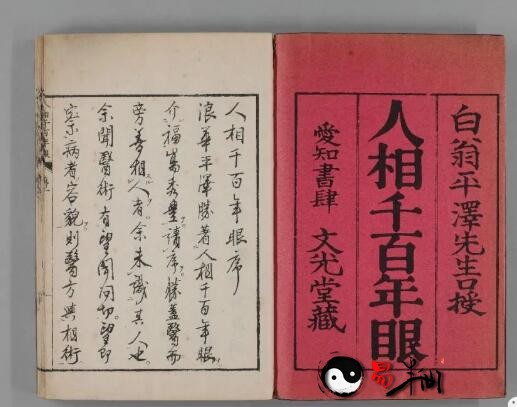 白翁平澤先生口授
人相千百年眼
愛知書肆 文光堂藏
人相千百年眼序
浪華平澤勝著人相千百年眼
介福嵩秀豊請序勝蓋醫而
旁善相人者余未識其人也
余聞醫術有望聞問切望即
察病者容貌則醫方與相術
易